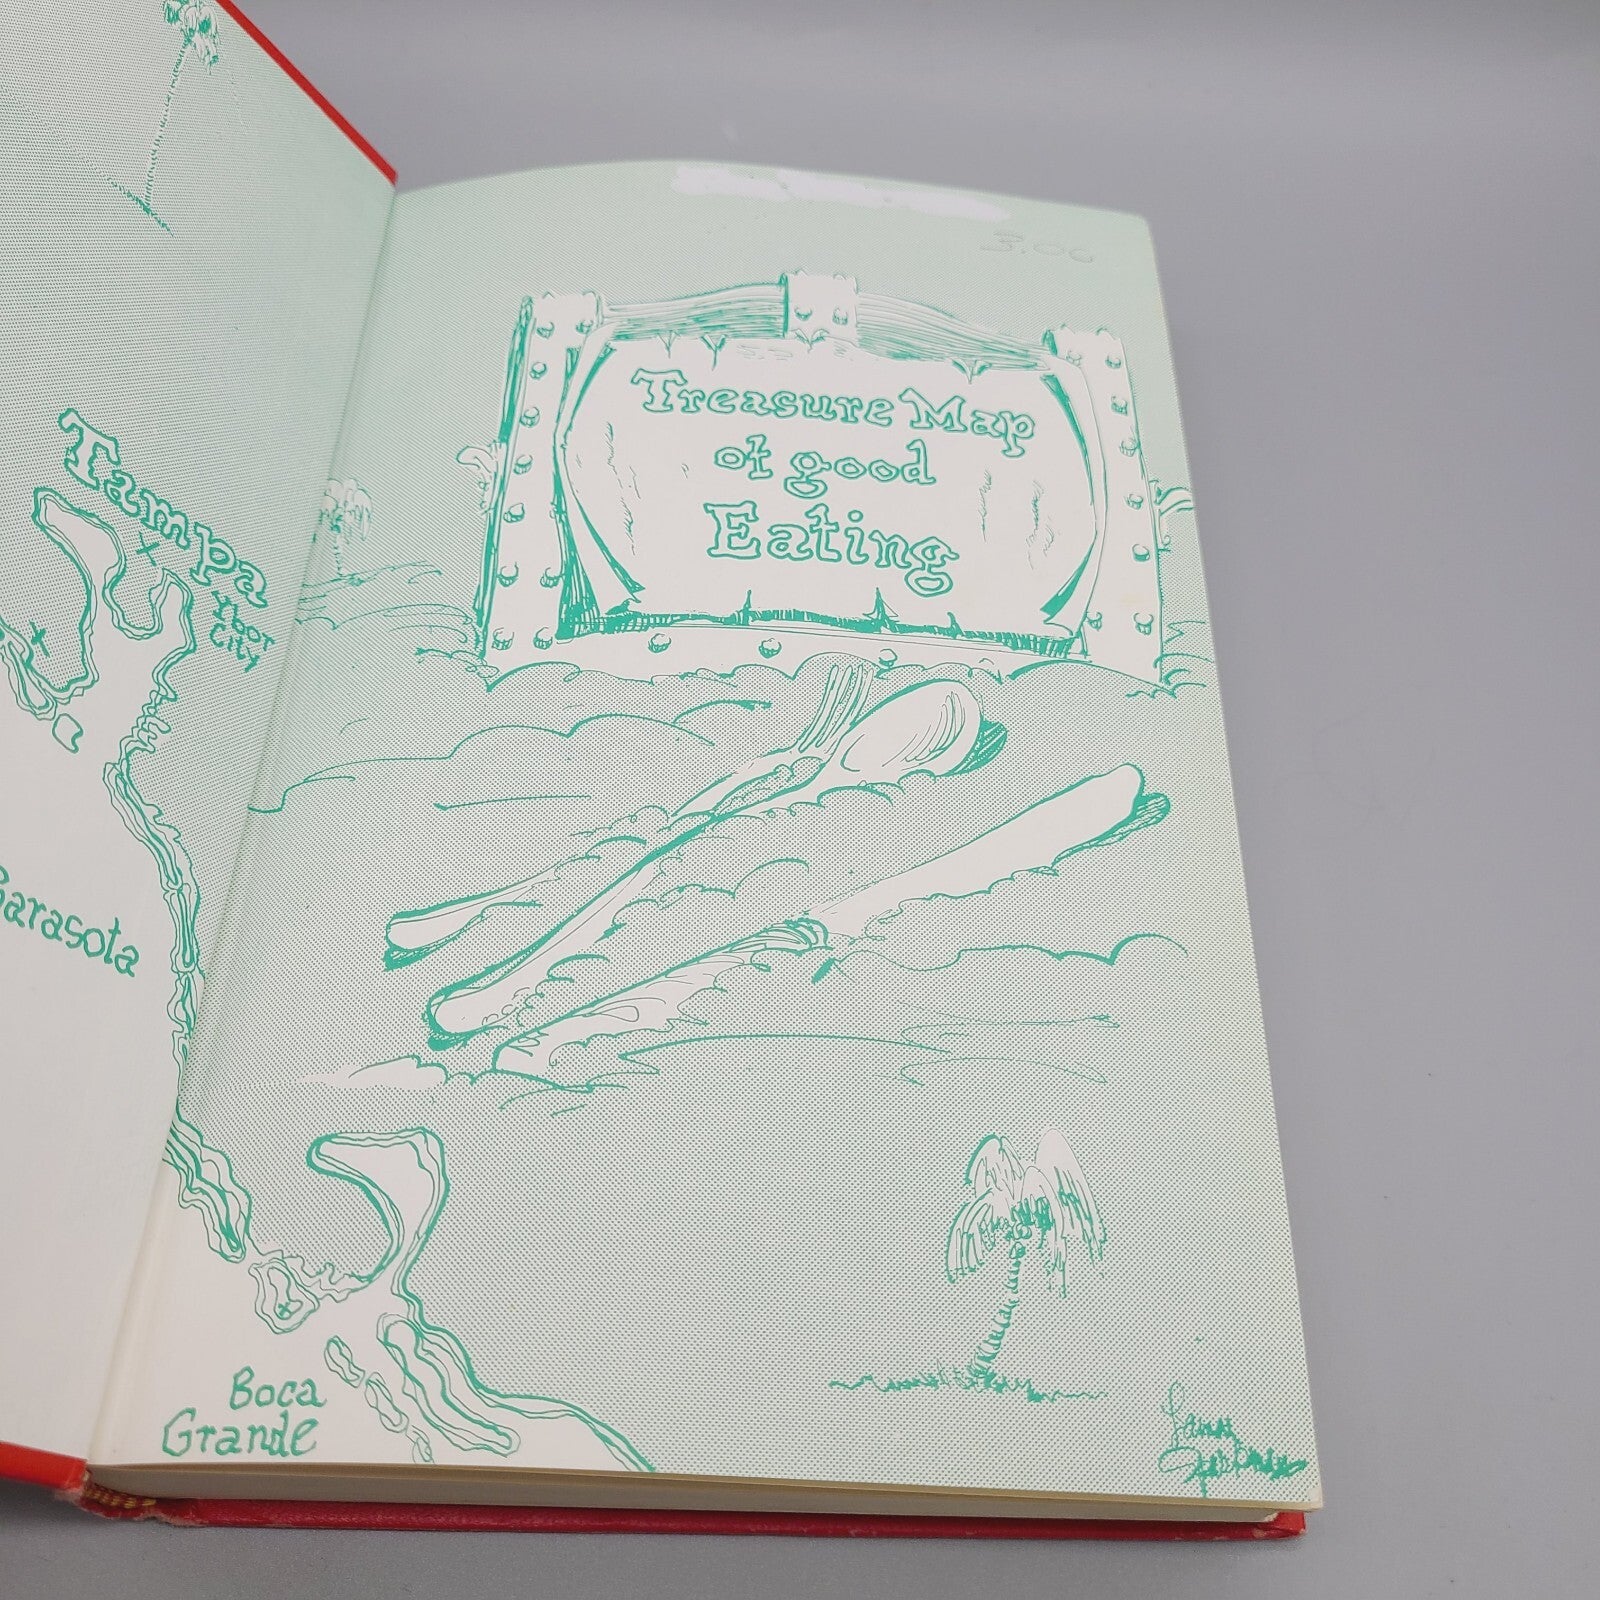 Tampa
Ybor
City
Sarasota
Boca
Grande
3.00
Treasure Map
of good
Eating